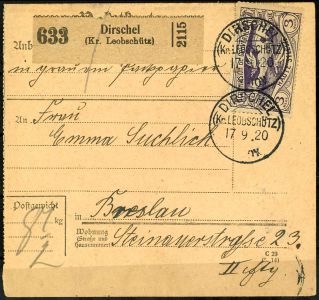 633
Dirschel
(Kr. Leobschütz)
2115
Anb
in grau em
An
Frau
Emma Suchlich
DIRSCHEL
(Kr. LEOBSCHÜTZ)
17 9. 20
3
DIRSCHEL
(Kr. LEOBSCHÜTZ)
17 9. 20
3
Postgewicht
kg
in Breslau
Wohnung
(Straße und
Hausnummer)
Steinauerstraße 23.
C 29
II